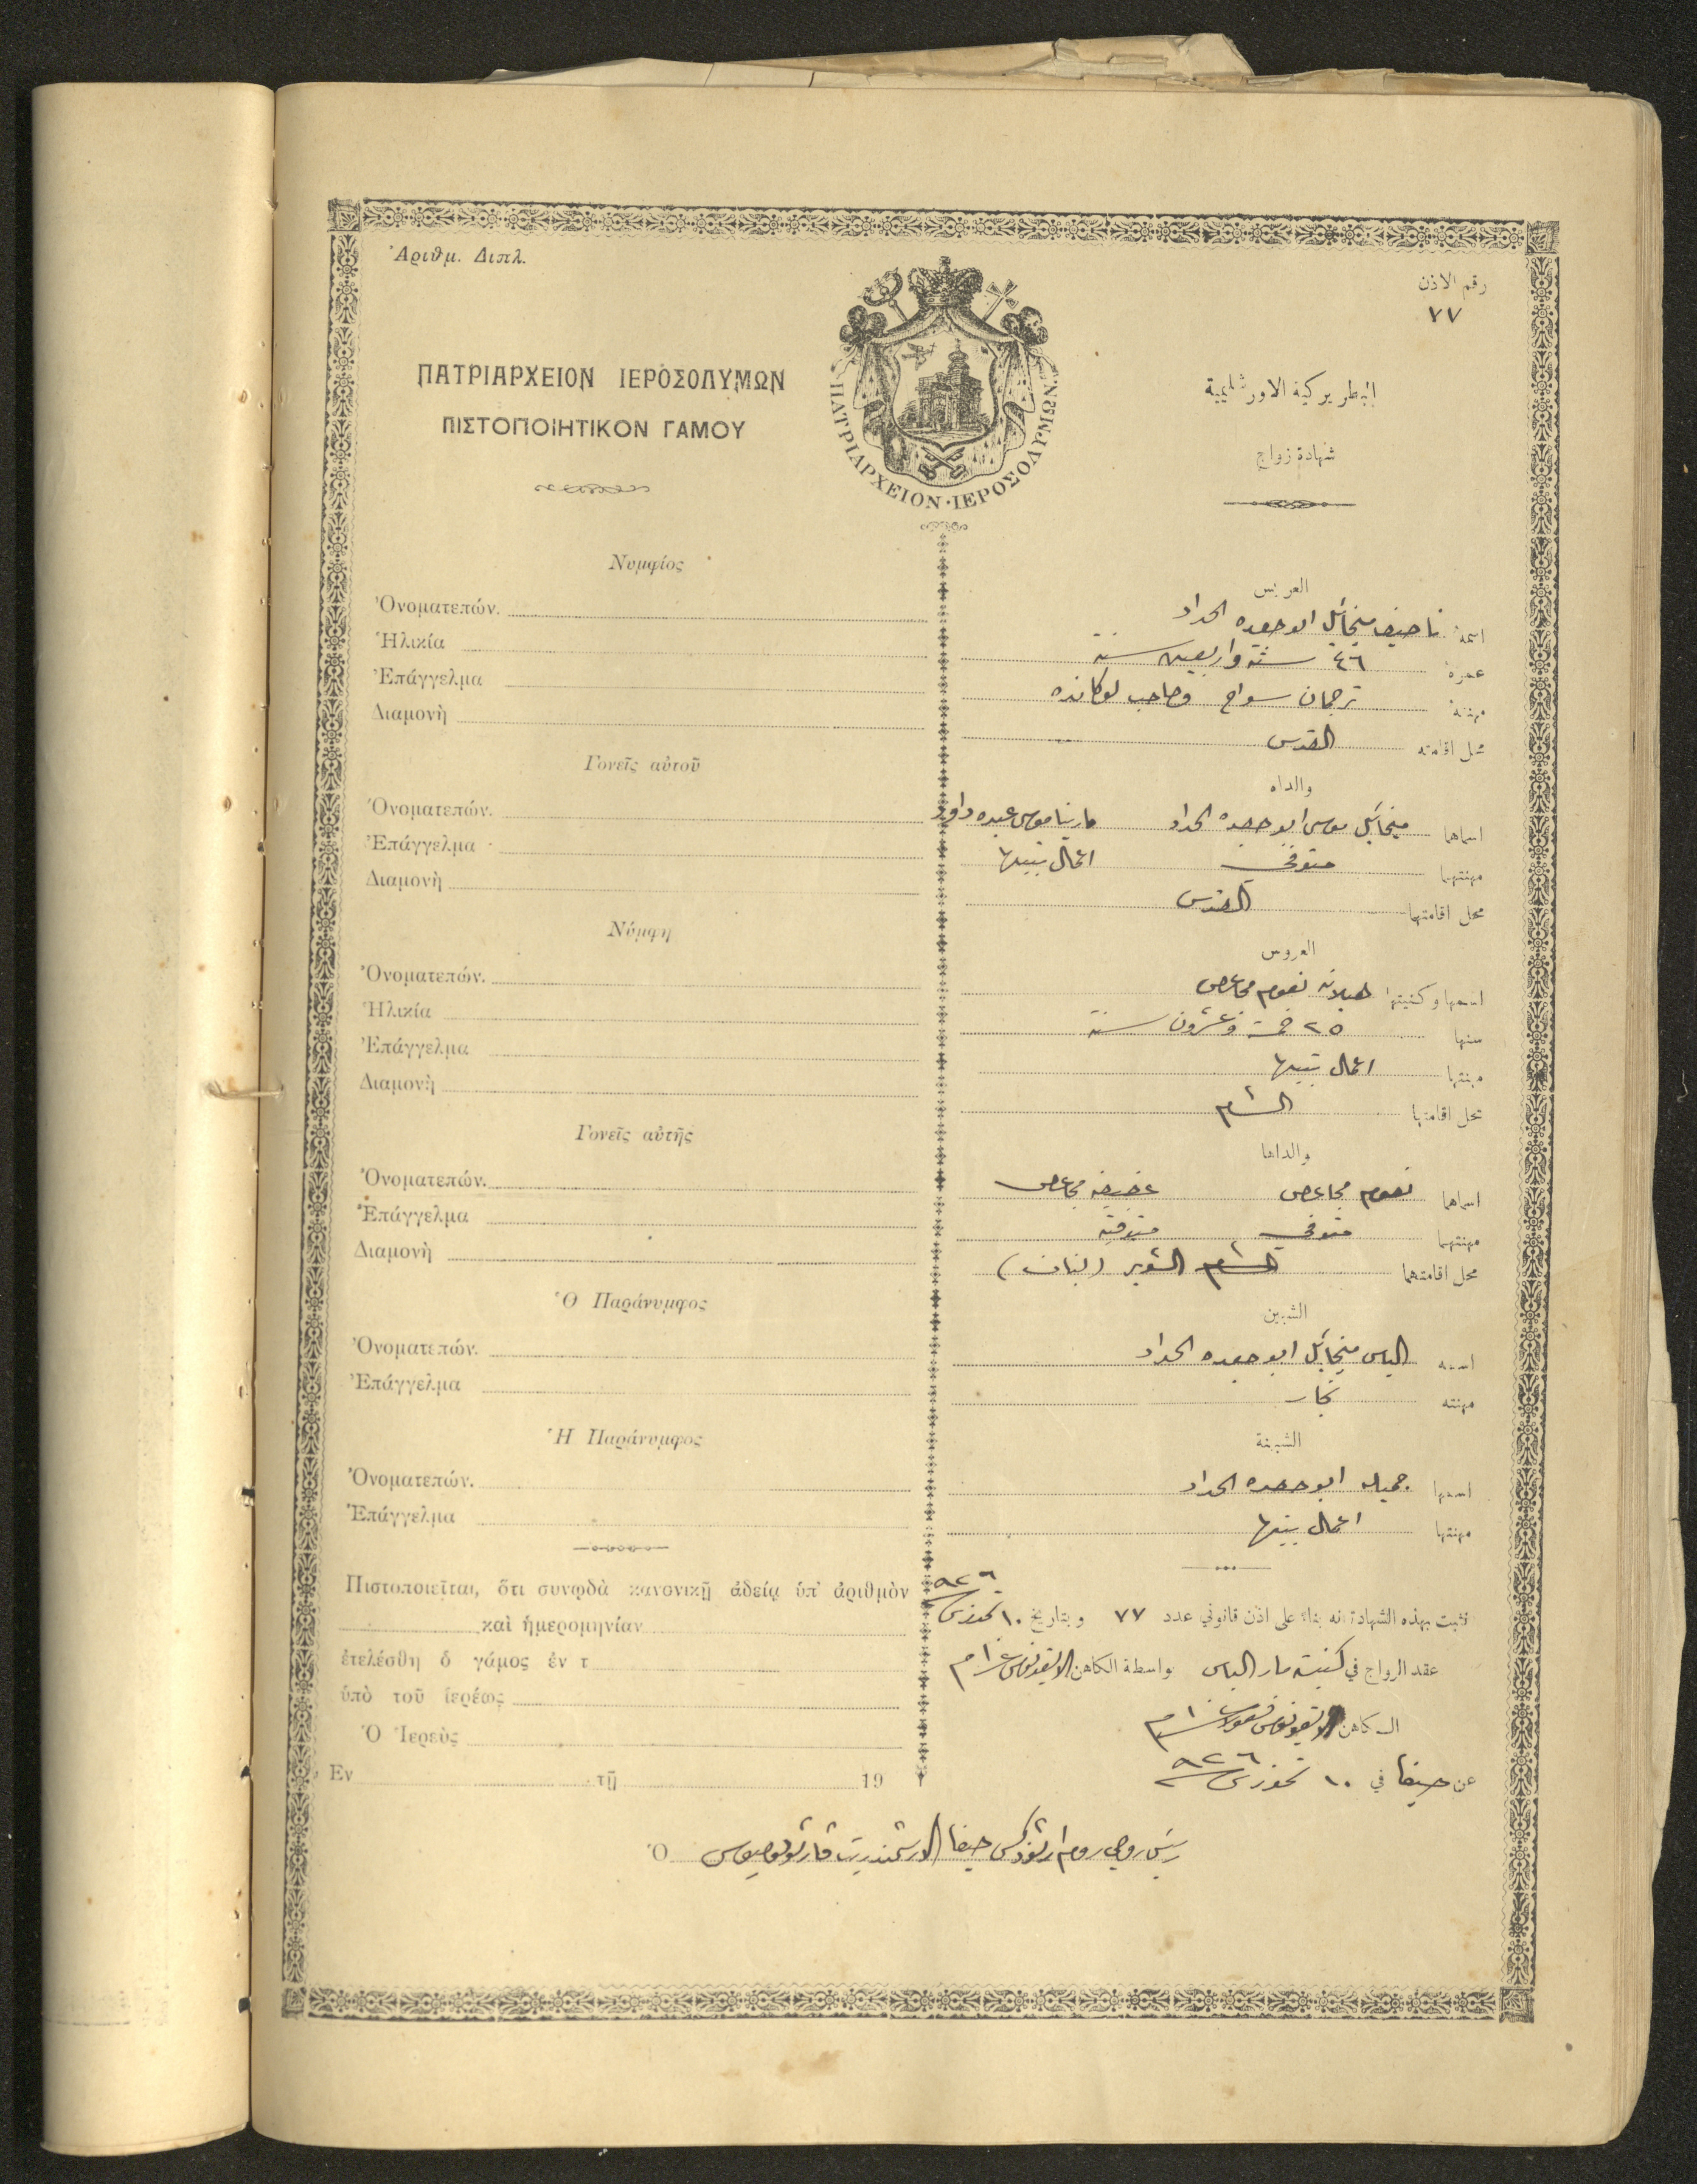 Ἀριθμ. Διπλ.
رقم الاذن
٧٧
ΠΑΤΡΙΑΡΧΕΙΟΝ ΙΕΡΟΣΟΛΥΜΩΝ
ΠΙΣΤΟΠΟΙΗΤΙΚΟΝ ΓΑΜΟΥ
ΠΑΤΡΙΑΡΧΕΙΟΝ·ΙΕΡΟΣΟΛΥΜΩΝ
البطريركية الاورشليمية
شهادة زواج
Νυμφίος
Ὀνοματεπών.
Ἡλικία
Ἐπάγγελμα
Διαμονὴ
Γονεῖς αὐτοῦ
Ὀνοματεπών.
Ἐπάγγελμα
Διαμονὴ
Νύμφη
Ὀνοματεπών.
Ἡλικία
Ἐπάγγελμα
Διαμονὴ
Γονεῖς αὐτῆς
Ὀνοματεπών.
Ἐπάγγελμα
Διαμονὴ
Ὁ Παράνυμφος
Ὀνοματεπών.
Ἐπάγγελμα
Ἡ Παράνυμφος
Ὀνοματεπών.
Ἐπάγγελμα
Πιστοποιεῖται, ὅτι συνῳδὰ κανονικῇ ἀδείᾳ ὑπ' ἀριθμὸν
καὶ ἡμερομηνίαν
ἐτελέσθη ὁ γάμος ἐν τ
ὑπὸ τοῦ ἱερέως
Ὁ Ἱερεὺς
Ἐν τῇ 19
العريس
اسمهُ ناصيف ميخائيل ابو جعيده الحداد
عمرهُ ٤٦ ستة واربعين سنة
مهنتهُ ترجمان سواح وصاحب لوكانده
محل اقامته القدس
والداه
اسماهما ميخائيل موسى ابو جعيده الحداد مارينا موسى عبده داود
مهنتهما متوفى اعمال بيتها
محل اقامتهما القدس
العروس
اسمها وكنيتها هيلانه نعوم مجاعص
سنها ٢٥ خمسة وعشرون سنة
مهنتها اعمال بيتها
محل اقامتها الشام
والداها
اسماهما نعوم مجاعص عفيفه مجاعص
مهنتهما متوفى متوفيه
محل اقامتهما الشام الشوير (لبنان)
الشبين
اسمه الياس ميخائيل ابو جعيده الحداد
مهنته نجار
الشبينة
اسمها جميله ابو جعيده الحداد
مهنتها اعمال بيتها
نثبت بهذه الشهادة انه بناءً على اذن قانوني عدد ٧٧ وبتاريخ ١٠ تموز س ٩٢٦
عقد الزواج في كنيسة مار الياس بواسطة الكاهن
الكاهن
عن حيفا في ١٠ تموز س ٩٢٦
Ὁ رئيس روحي روم ارثوذكس حيفا الارشمندريت